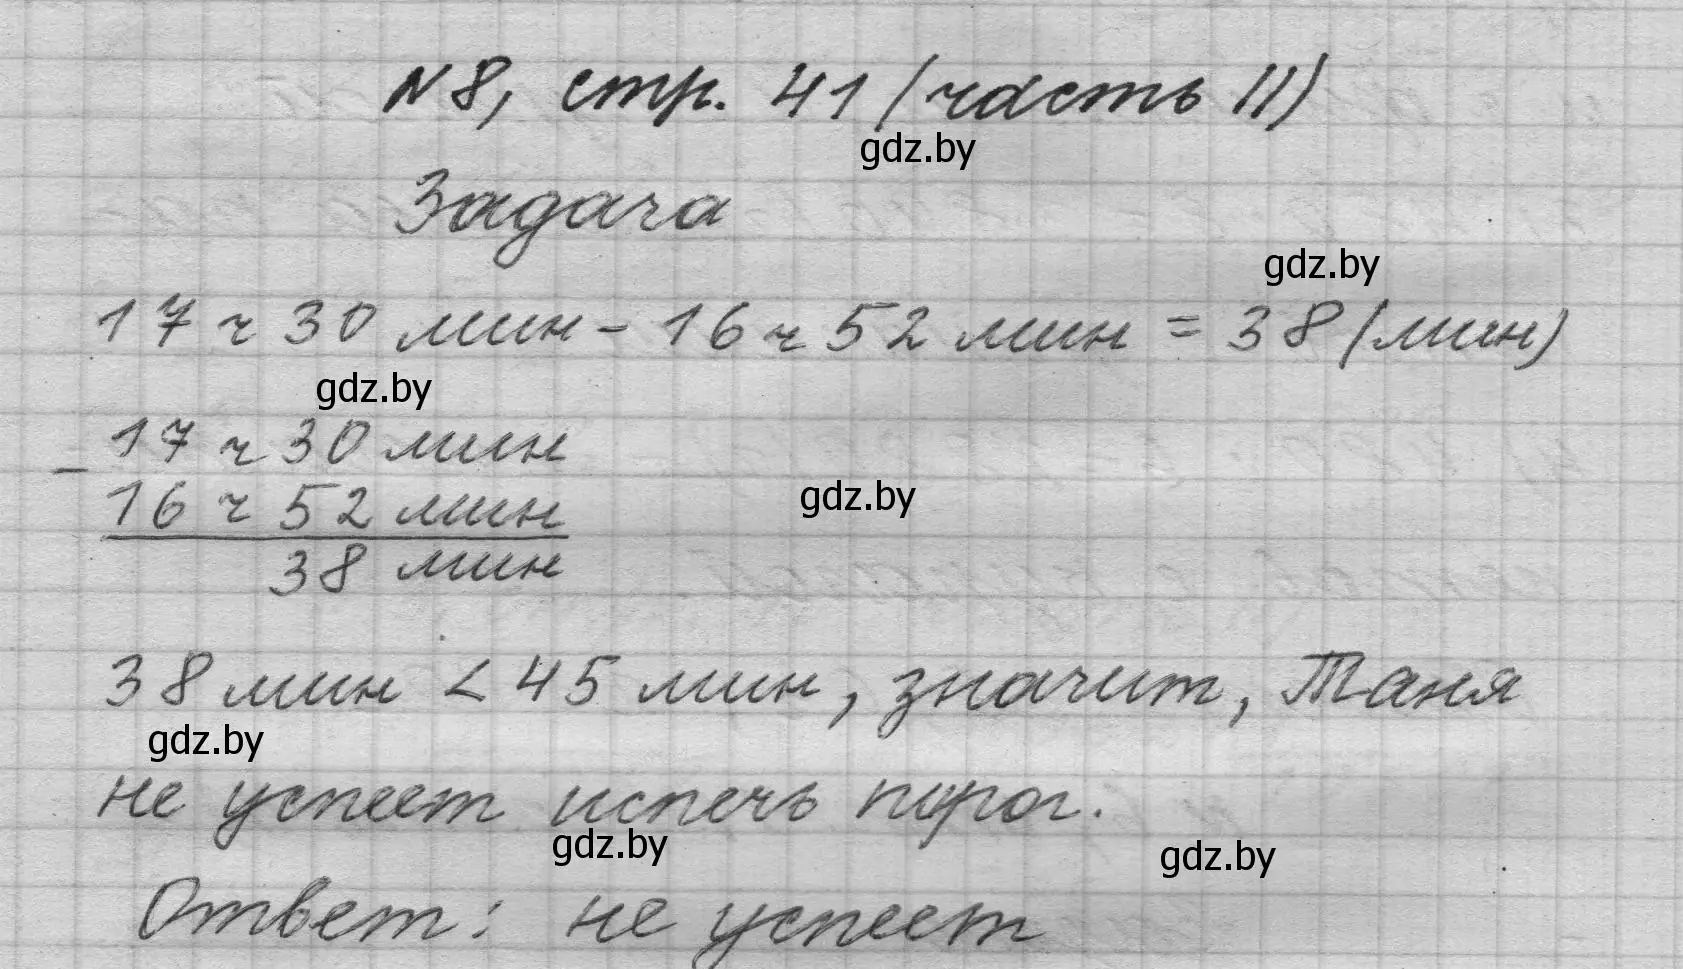 №8, стр. 41 (часть II)
gdz.by
Задача
gdz.by
17 ч 30 мин - 16 ч 52 мин = 38 (мин)
gdz.by
17 ч 30 мин
-
16 ч 52 мин
gdz.by
38 мин
38 мин < 45 мин, значит, Таня
gdz.by
не успеет испечь пирог.
gdz.by
gdz.by
Ответ: не успеет